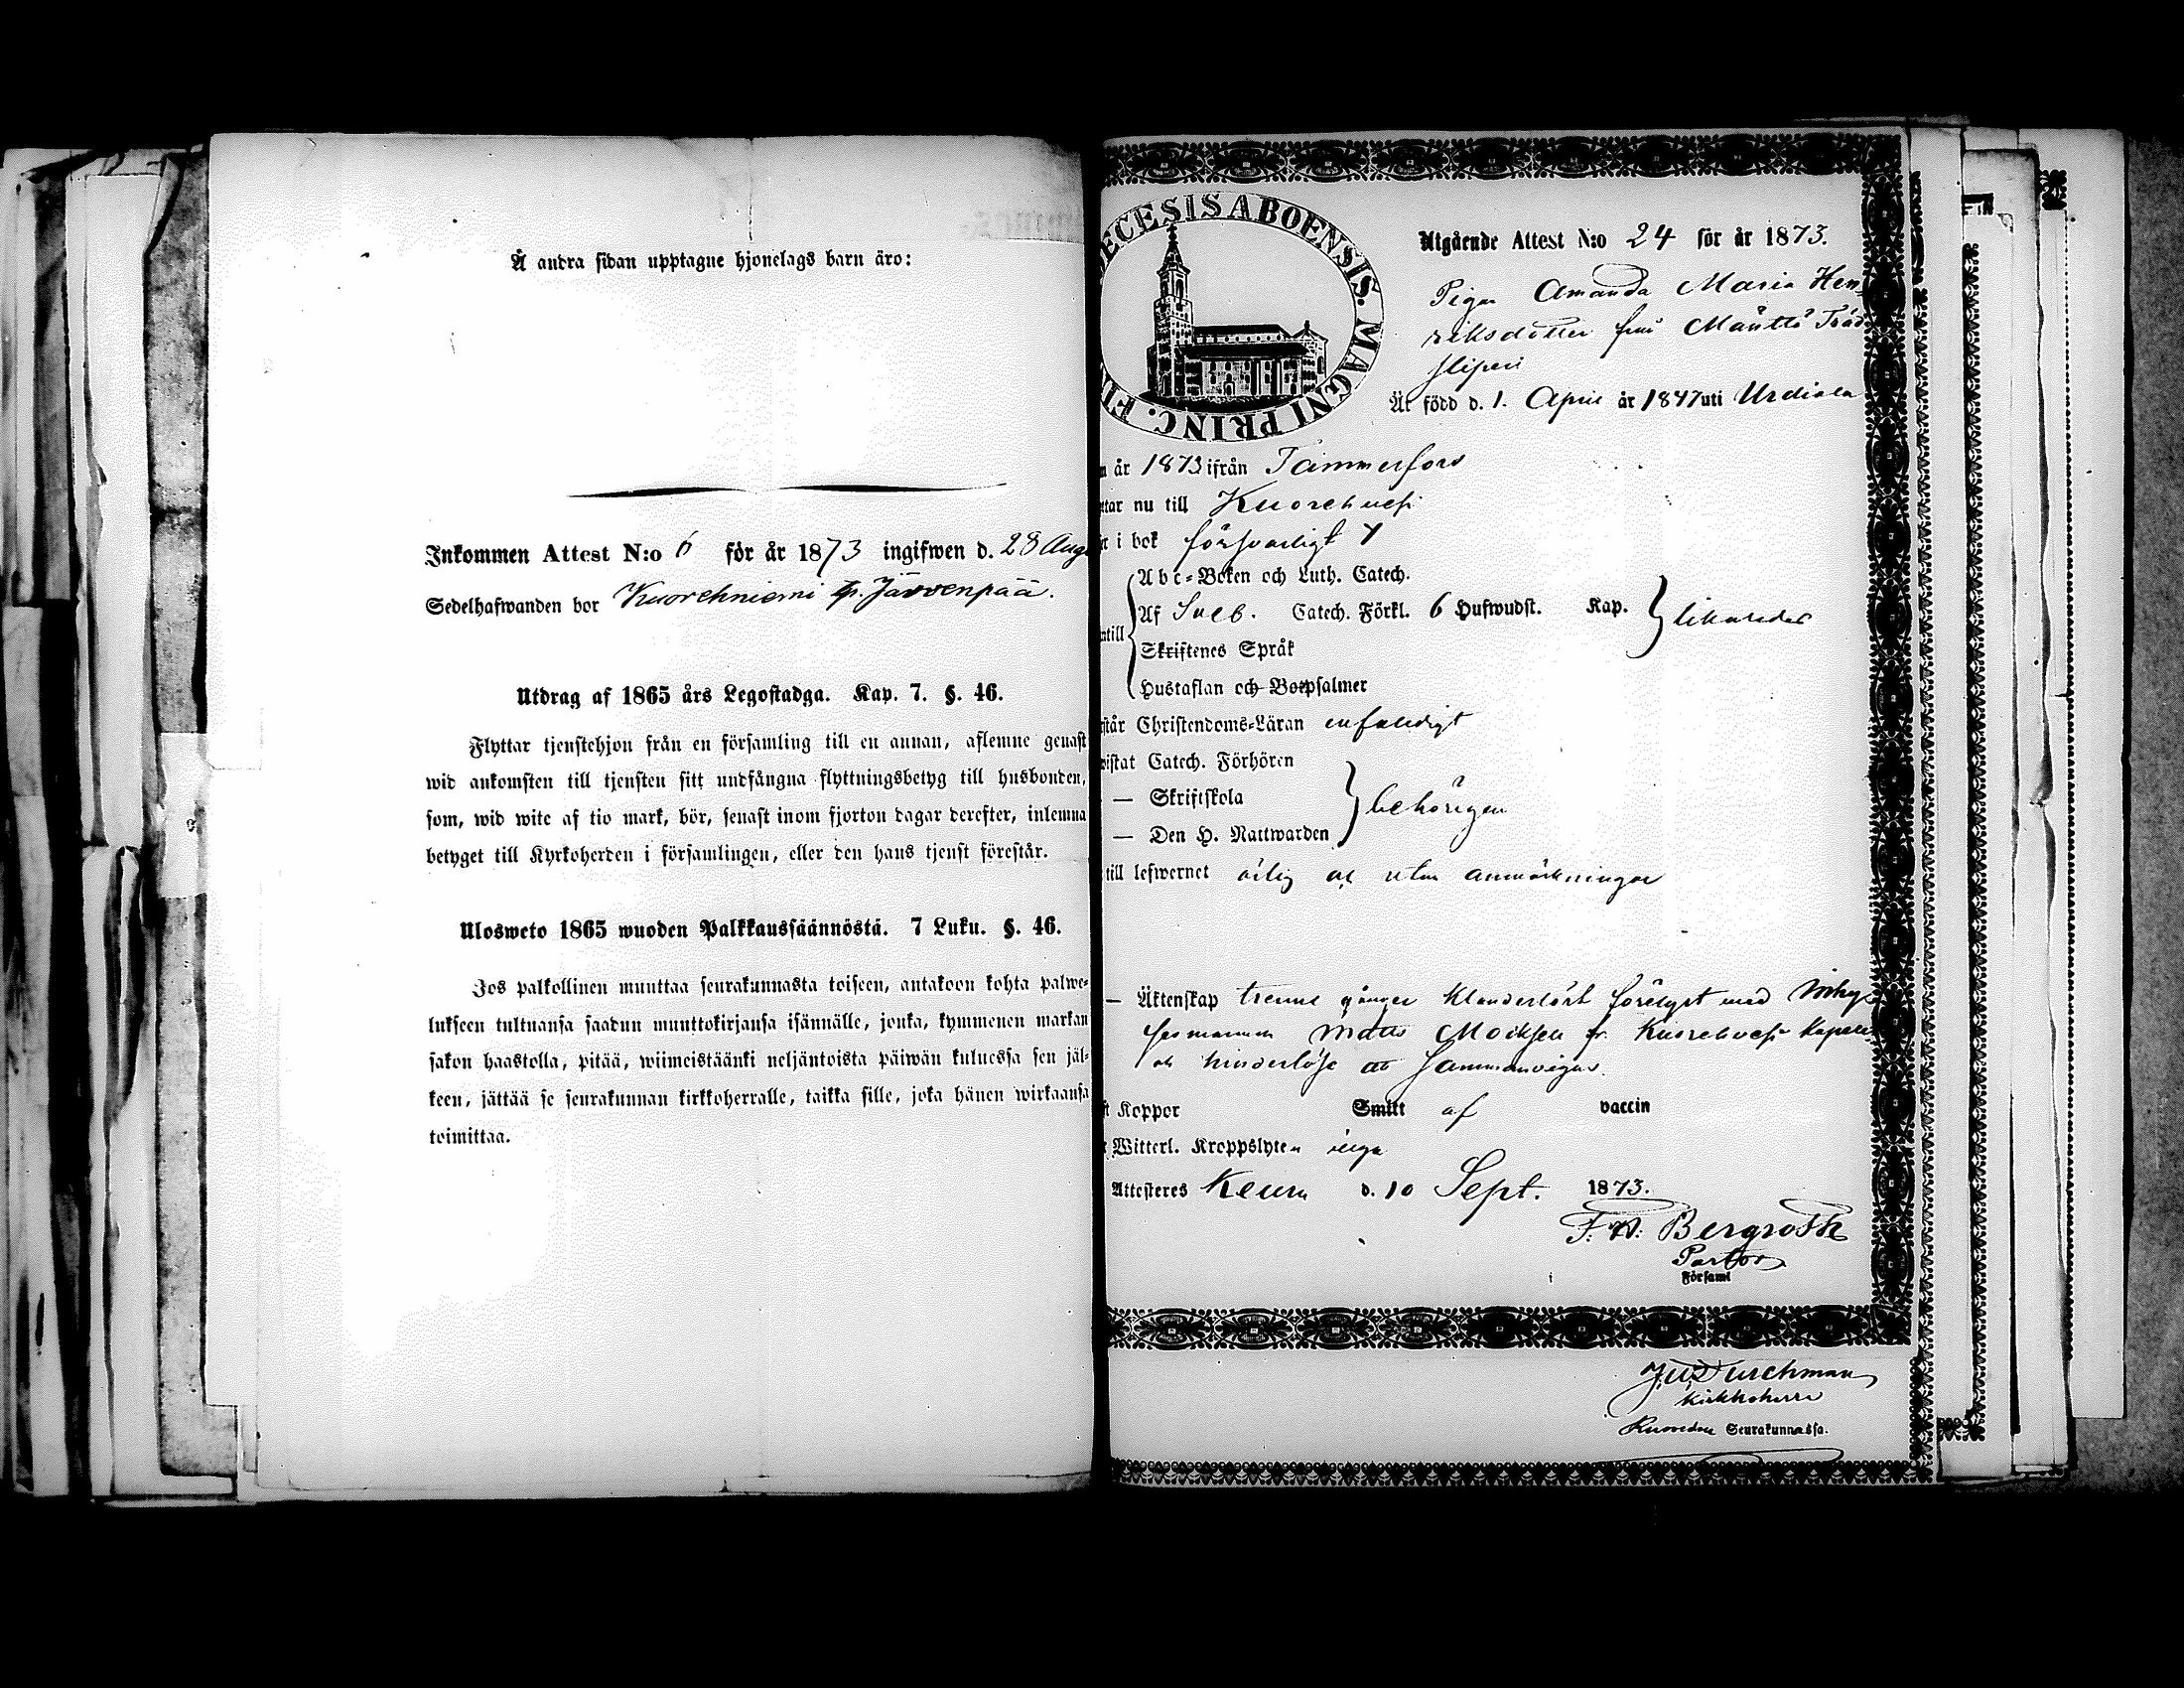 Å andra sidan upptagne hjonelags barn äro:
Inkommen Attest N:o 6 för år 1873 ingifwen d. 28 Aug
Sedelhafwanden bor Kuorehniemi Järvenpää.
Utdrag af 1865 års Legostadga. Kap. 7. §. 46.
Flyttar tjenstehjon från en församling till en annan, aflemne genast
wid ankomsten till tjensten sitt undfångna flyttningsbetyg till husbonden,
som, wid wite af tio mark, bör, senast inom fjorton dagar derefter, inlemna
betyget till Kyrkoherden i församlingen, eller den hans tjenst förestår.
Ulosweto 1865 wuoden Palkkaussäännöstä. 7 Luku. §. 46.
Jos palkollinen muuttaa seurakunnasta toiseen, antakoon kohta palwe-
lukseen tultuansa saadun muuttokirjansa isännälle, jonka, kymmenen markan
sakon haastolla, pitää, wiimeistäänki neljäntoista päiwän kuluessa sen jäl-
keen, jättää se seurakunnan kirkkoherralle, taikka sille, joka hänen wirkaansa
toimittaa.
ECESIS ABOENSIS. MAGNI PRINC. FI
Utgående Attest N:o 24 för år 1873.
Pigan Amanda Maria Hen-
riksdotter från Mänttä Trä
sliperi
Är född d. 1. April år 1847 uti Urdiala
år 1873 ifrån Tammerfors
tar nu till Kuorehvesi
i bok försvarligt
Abc-Boken och Luth. Catech.
Af Sveb. Catech. Förkl. 6 Hufwudst. Kap. likaledes
till
Skriftenes Språk
Hustaflan och Botpsalmer
står Christendoms-Läran enfaldigt
wistat Catech. Förhören
— Skriftskola behörigen
— Den H. Nattwarden
till lefwernet ärlig och utan anmärkningar
— Äktenskap trenne gånger klanderlöst förelyst med Inhy-
sesmannen Matts fr. Kuorehvesi Kapell
och hinderlöse att sammanvigas.
Koppor Smitt af vaccin
Witterl. Kroppslyten inga
Attesteres Keuru d. 10 Sept. 1873.
F. W. Bergroth
Pastor
i Församl
Durchman
Kirkkoherra
Ruoveden Seurakunnassa.